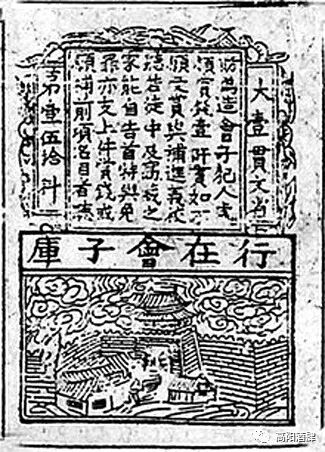 大壹貫文省
偽造會子犯人
賞錢壹阡貫如不
願支賞與補進義校
若徒中及窩之
家能自告首特與免
罪亦支上件賞錢或
願補前項名目者
第壹伍拾料
行在會子庫
高阳酒肆